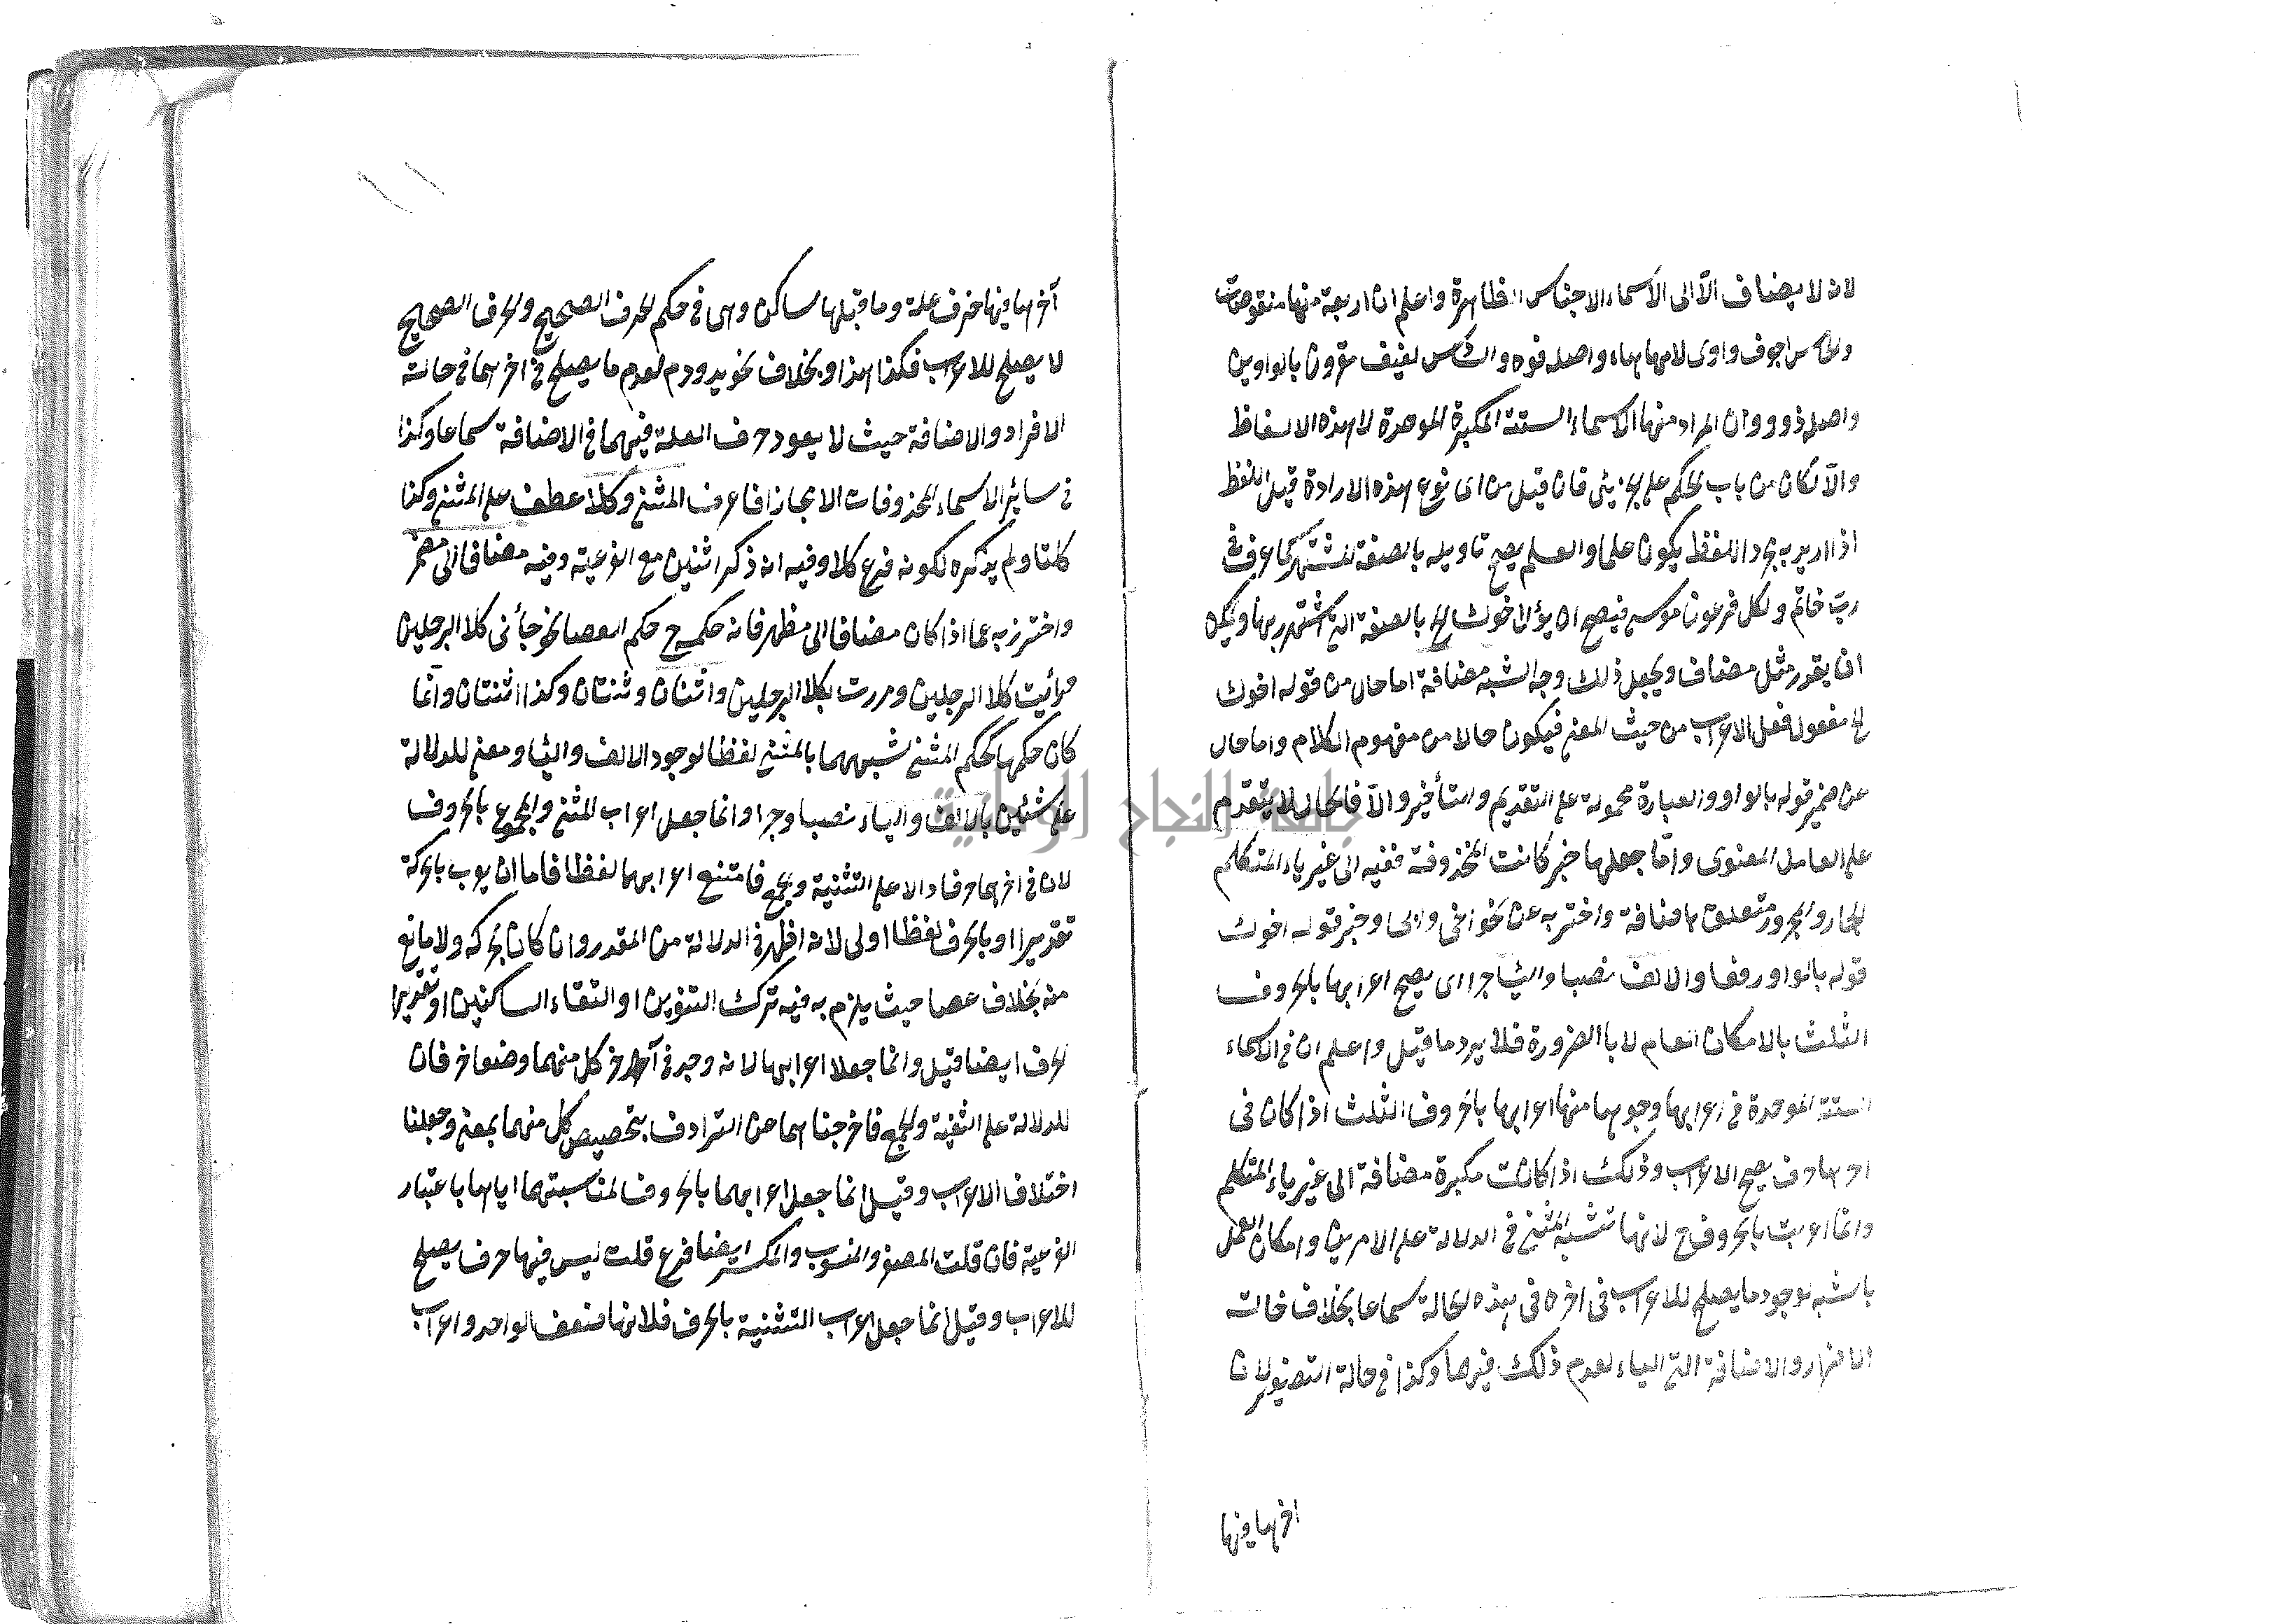 لانه لا يضاف الّا الى الأسماء الاجناس الظاهرة واعلم ان اربعة منها منقوصات
والخامس اجوف واوى لامها هاء واصله فوه والسادس لفيف مقرون بالواوين
واصله ذوو وان المراد منها الأسماء الستة المكبرة الموحدة لا هذه الالفاظ
والّا لكان من باب الحكم على الجزئى فان قيل من اى نوع هذه الارادة قيل اللفظ
اذا اريد به مجرد اللفظ يكون علما والعلم يصح تاويله بالصفة المشتهر كما عرف فى
ربّ خاتم ولكل فرعون موسى فيصح ان يؤل اخوك الخ بالصفة التى اشتهر بها ويمكن
ان يقدر مثل مضاف ويجعل ذلك وجه الشبه مضافة اما حال من قوله اخوك
الخ مفعول فعل الاعراب من حيث المعنى فيكون حالا من مفهوم الكلام واما حال
عن ضمير قوله بالواو والعبارة محمولة على التقديم والتأخير والّا فالحال لا يتقدم
على العامل المعنوى وامّا جعلها خبر كانت المحذوفة ففيه الى غير ياء المتكلم
الجار والمجرور متعلق بمضافة واحترز به عن نحو اخى وابى وخبر قوله اخوك
قوله بالواو رفعا والالف نصبا والياء جرا اى يصح اعرابها بالحروف
الثلث بالامكان العام لا بالضرورة فلا يرد ما قيل واعلم ان فى الاسماء
الستة الموحدة فى اعرابها وجوها منها اعرابها بالحروف الثلث اذا كان فى
اخرها حرف يصح الاعراب وذلك اذا كانت مكبرة مضافة الى غير ياء المتكلم
وانما اعربت بالحروف ح لانها تشبه المثنى فى الدلالة على الامرين وامكان العمل
بالشبه لوجود ما يصلح للاعراب فى اخره فى هذه الحالة سماعا بخلاف حالت
الافراد والاضافة الى الياء لعدم ذلك فيهما وكذا فى حالة التصغير لان
اخرها فيها
١١
آخرها فيها حرف علة وما قبلها ساكن وهى فى حكم الحرف الصحيح والحرف الصحيح
لا يصلح للاعراب فكذا هذا وبخلاف نحو يد ودم لعدم ما يصلح فى اخرهما فى حالة
الافراد والاضافة حيث لا يعود حرف العلة فيهما فى الاضافة سماعا وكذا
فى سائر الاسماء المحذوفات الاعجاز فاعرف المثنى وكلا عطف على المثنى وكذا
كلتا ولم يذكره لكونه فرع كلا وفيه انه ذكر اثنين مع الفرعية وفيه مضافا الى مضمر
واحترز به عما اذا كان مضافا الى مظهر فانه حكمه ح حكم العصا نحو جأنى كلا الرجلين
ورأيت كلا الرجلين ومررت بكلا الرجلين واثنان وثنتان وكذا اثنتان وانما
كان حكمها كحكم المثنى لشبههما بالمثنى لفظا لوجود الالف والياء ومعنى للدلالة
على شئين بالالف والياء نصبا وجرا وانما جعل اعراب المثنى والمجموع بالحروف
لان فى اخرهما حرفا دالا على التثنية والجمع فامتنع اعرابهما لفظا فاما ان يعرب بالحركة
تقديرا او بالحرف لفظا اولى لانه اظهر فى الدلالة من المقدر وان كان بحركه ولا مانع
منه بخلاف عصا حيث يلزم به فيه ترك التنوين او التقاء الساكنين او تقديرا
لحرف ايضا قيل وانما جعلا اعرابها لانه وجد فى آخر كل منهما وضعا حرفان
للدلالة على التثنية والجمع فاخرجناهما عن الترادف بتخصيص كل منهما بمعنى وجعلنا
اختلاف الاعراب وقيل انما جعل اعرابهما بالحروف لمناسبتهما اياها باعتبار
الفرعية فان قلت المصغر والمنسوب والمكسر ايضا فرع قلت ليس فيها حرف يصلح
للاعراب وقيل انما جعل اعراب التثنية بالحرف فلانها ضعف الواحد واعراب
جامعة النجاح الوطنية